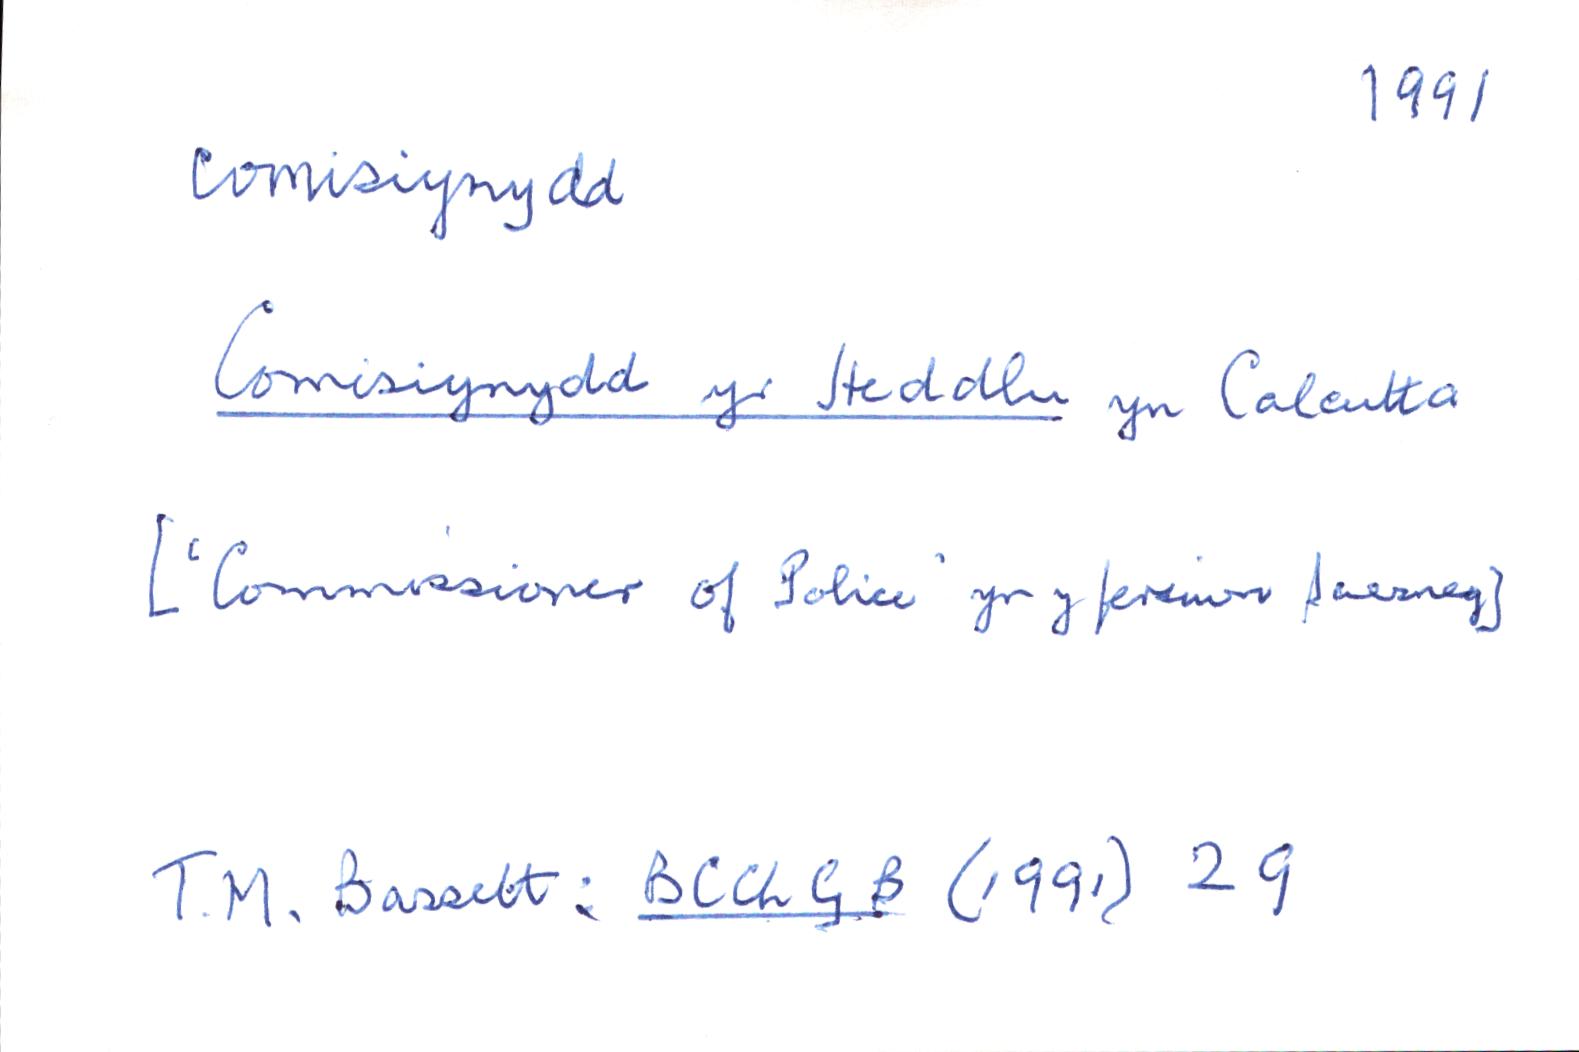 1991
comisiynydd
Comisiynydd yr Heddlu yn Calcutta
['Commissioner of Police' yn y fersiwn Saesneg]
T.M. Bassett: BCChGB (1991) 29